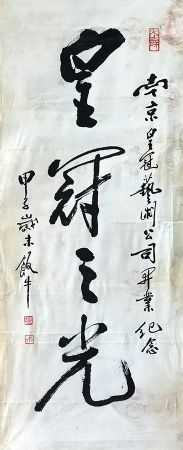 南京皇冠藝湖公司開業紀念
皇冠之光
甲子歲末飯牛